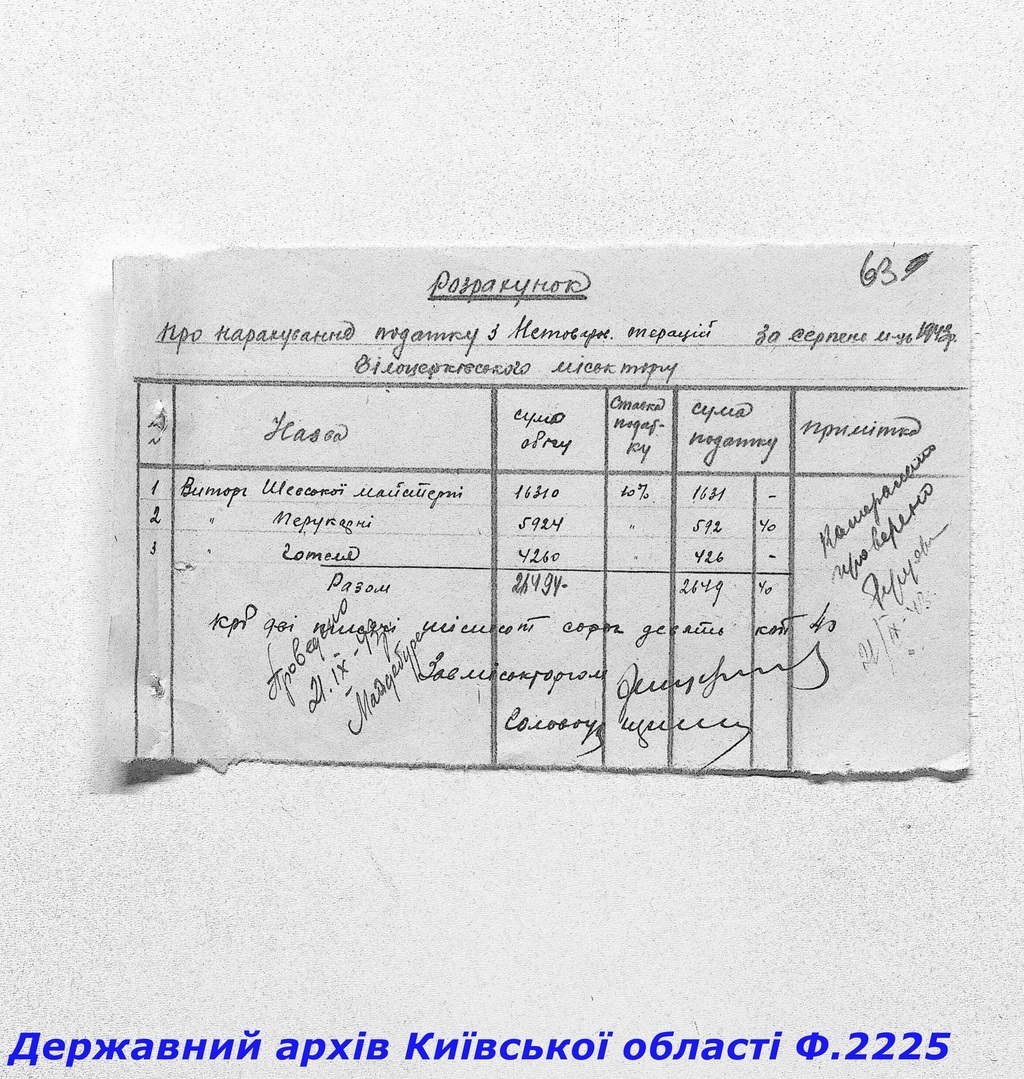 63
Розрахунок
про нарахування податку з Нетоварн. операцій за серпень м-ць 1943р.
Білоцерківського міськторгу
№№ Назва сума обігу Ставка подат-ку сума податку примітка
1 Виторг Шевської майстерні 16310 10% 1631 -
2 " Перукарні 5924 " 592 40
3 " Готелю 4260 " 426 -
Разом 26494- 2649 40
Крб дві тисячі шістсот сорок девять коп 40
Проведено
21.IX-43
Завміськторгом
Камерально
проверено
21/IX-43.
Державний архів Київської області Ф.2225